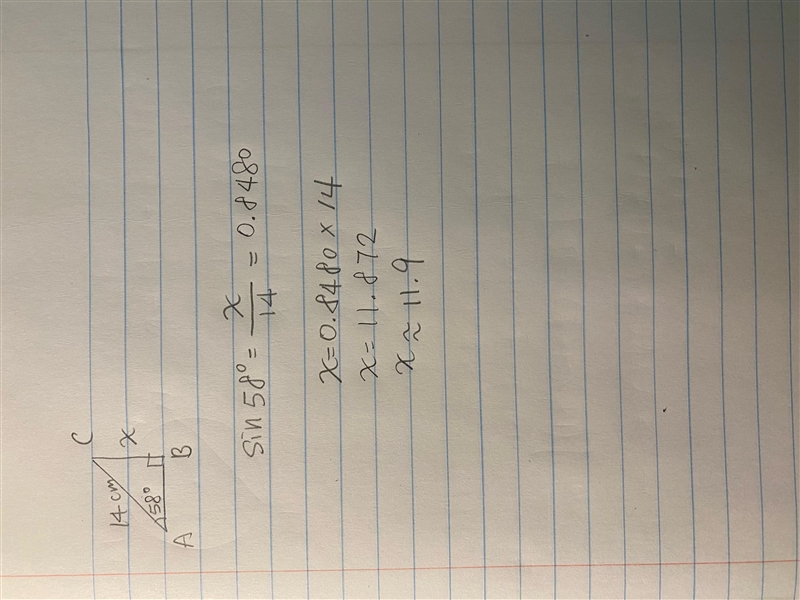 C
14 cm
x
58°
A
B
sin 58° = x/14 = 0.8480
x = 0.8480 × 14
x = 11.872
x ≈ 11.9